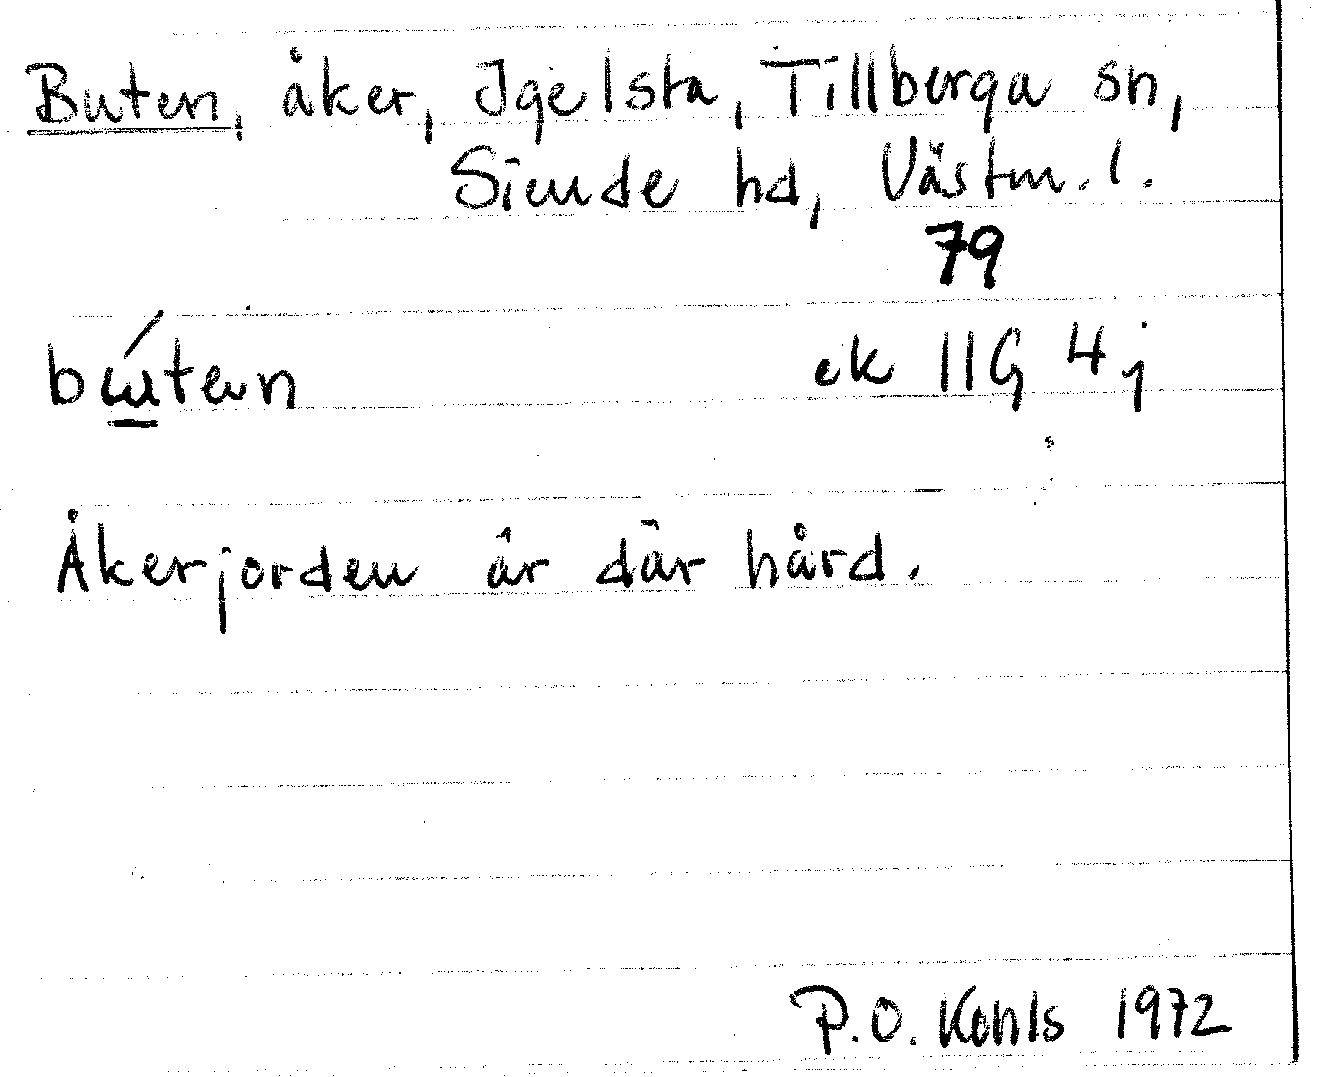 Buten, åker, Igelsta, Tillberga sn,
Siende hd, Västm. l.
79
ek 11G 4j
Åkerjorden är där hård.
P.O. Kohls 1972